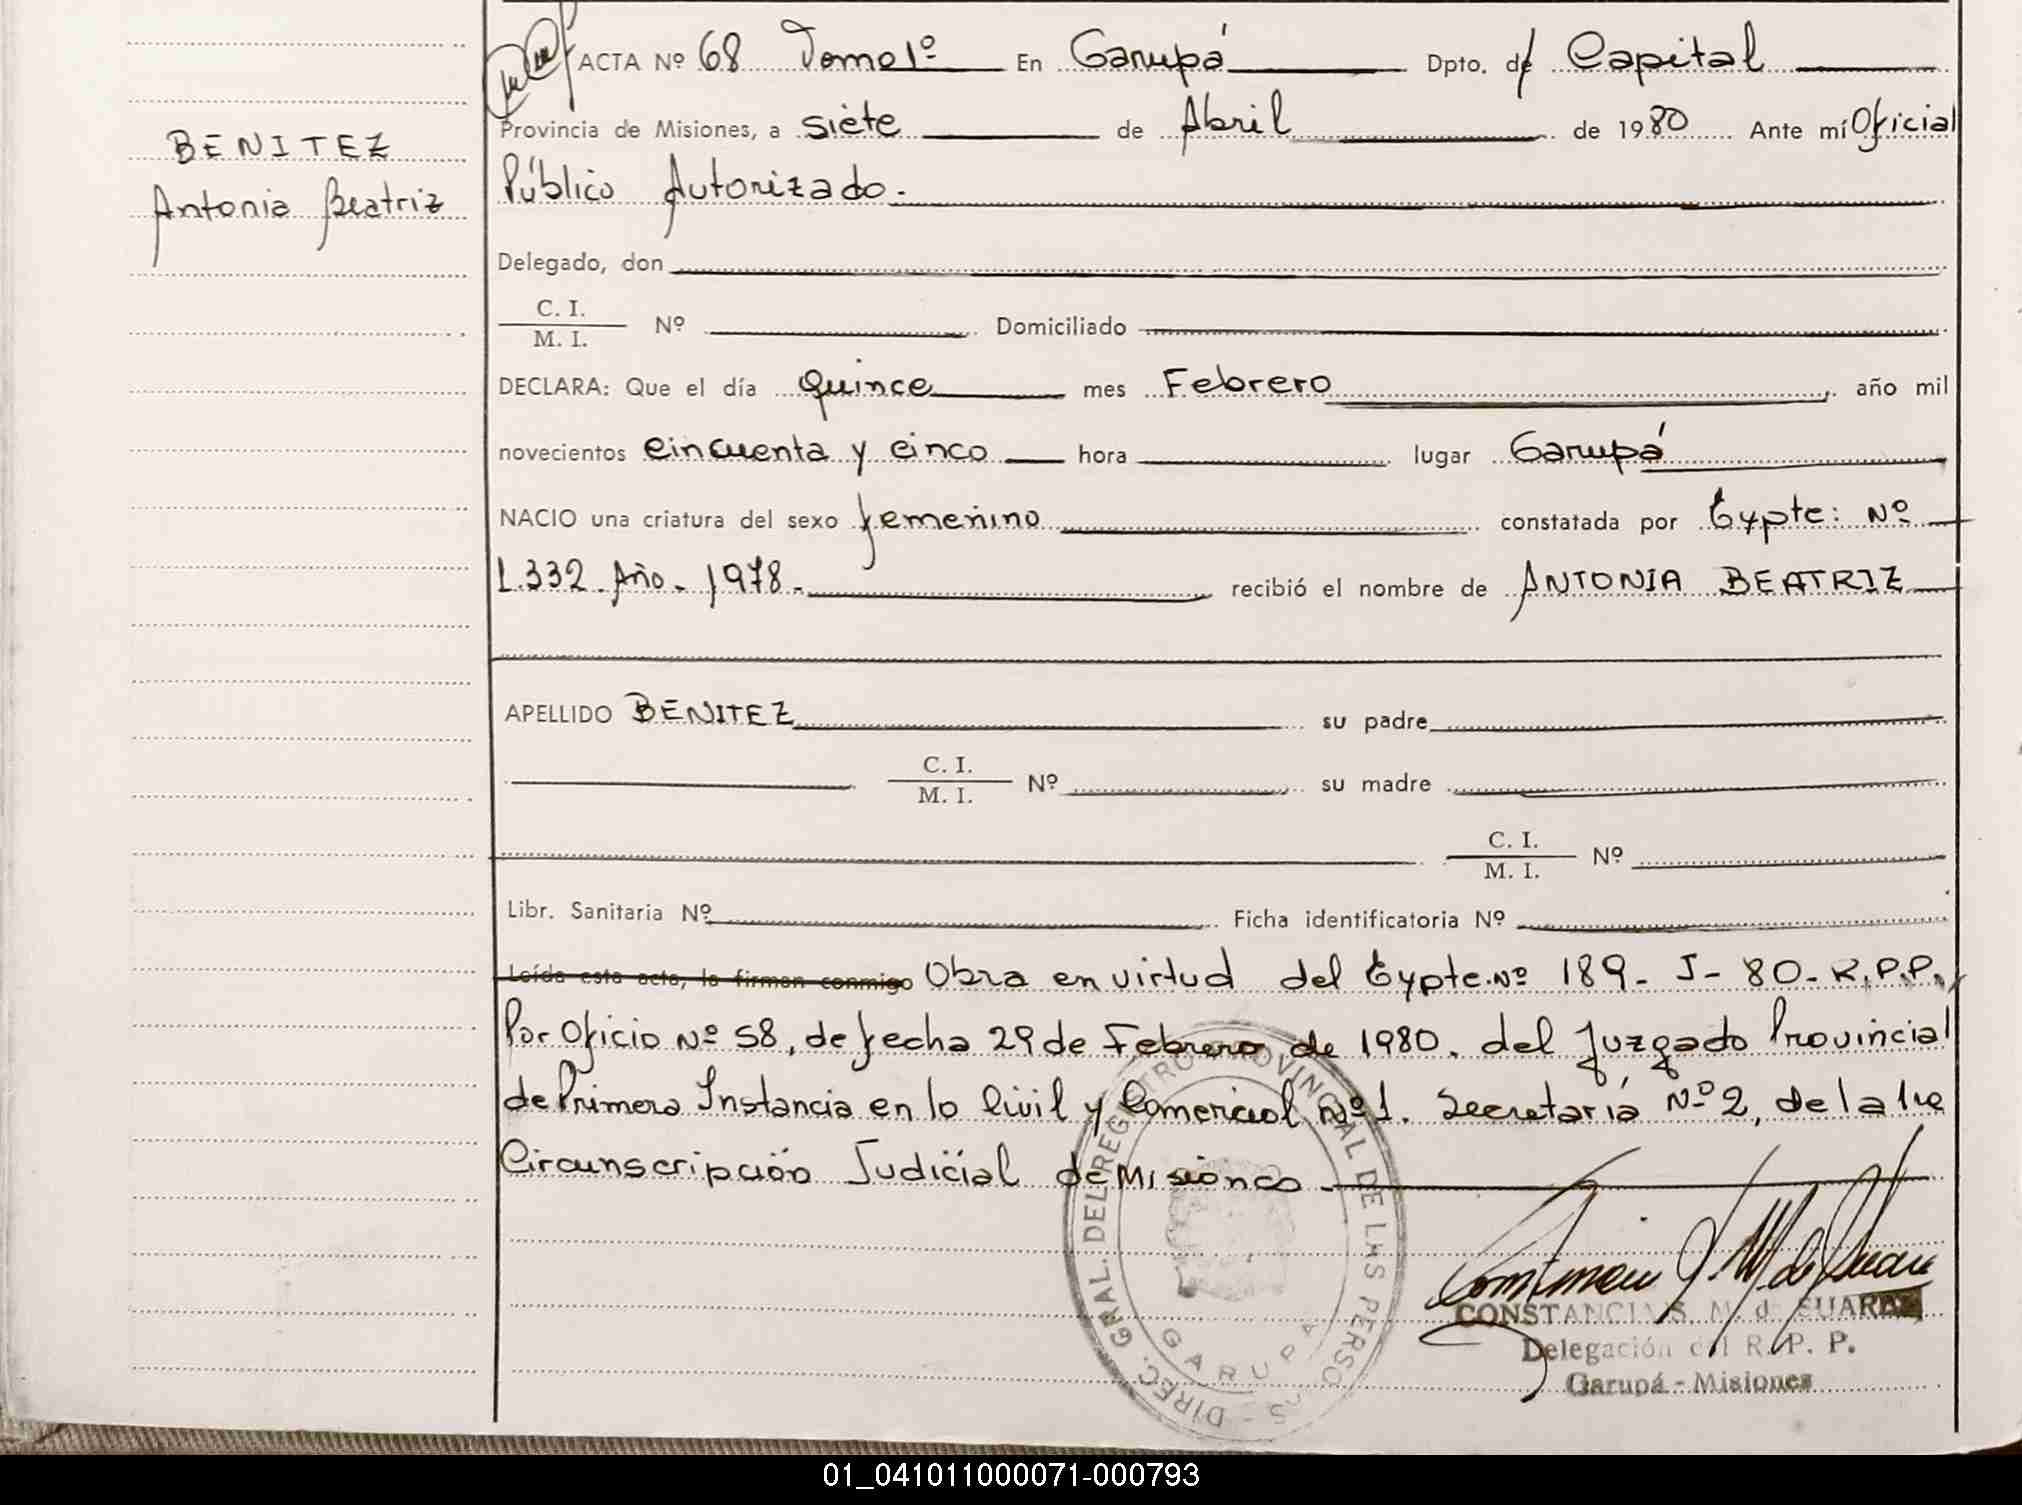 ACTA Nº 68 Tomo 1º En Garupá Dpto. de Capital
Provincia de Misiones, a siete de Abril de 1980 Ante mí Oficial
Público Autorizado.
BENITEZ
Antonia Beatriz
Delegado, don
C. I.
M. I.
Nº Domiciliado
DECLARA: Que el día quince mes Febrero, año mil
novecientos cincuenta y cinco hora lugar Garupá
NACIO una criatura del sexo femenino constatada por Expte: Nº
1.332. Año. 1978. recibió el nombre de ANTONIA BEATRIZ
APELLIDO BENITEZ su padre
C. I.
M. I.
Nº su madre
C. I.
M. I.
Nº
Libr. Sanitaria Nº Ficha identificatoria Nº
Leída esta acta, la firman conmigo Obra en virtud del Expte. Nº 189- J- 80- R.P.P.
Por Oficio Nº 58, de fecha 29 de Febrero de 1980. del Juzgado Provincial
de Primera Instancia en lo Civil y Comercial nº 1. Secretaría Nº 2, de la 1ra
Circunscripción Judicial de Misiones
DIREC. GRAL. DEL REGISTRO PROVINCIAL DE LAS PERSONAS -
GARUPA
CONSTANCIA S. M. de SUAREZ
Delegación del R. P. P.
Garupá - Misiones
01_041011000071-000793